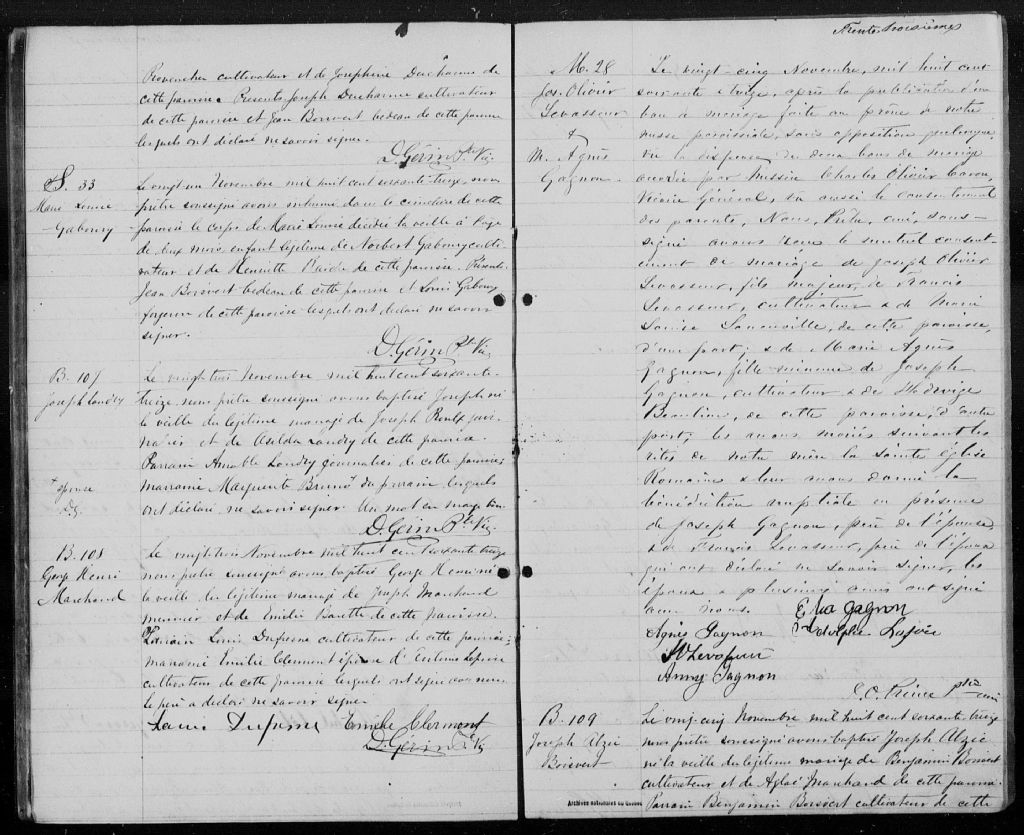 Provencher cultivateur et de Josephine Ducharme de
cette paroisse. Présents Joseph Ducharme cultivateur
de cette paroisse et Jean Boisvert bedeau de cette paroisse
lesquels ont déclaré ne savoir signer.
D. Gérin Ptre Vic.
S. 33
Marie Louise
Gaboury
Le vingt-un Novembre mil huit cent soixante-treize, nous
prêtre soussigné avons inhumé dans le cimetière de cette
paroisse le corps de Marie Louise décédée la veille à l'age
de deux mois enfant légitime de Norbert Gaboury culti
vateur et de Henriette de cette paroisse. Présents
Jean Boisvert bedeau de cette paroisse et Louis Gaboury
forgeron de cette paroisse lesquels ont déclaré ne savoir
signer.
D. Gérin Ptre Vic.
B. 107
Joseph Landry
Le vingt trois Novembre mil huit cent soixante-
treize nous prêtre soussigné avons baptisé Joseph né
la veille du légitime mariage de Joseph
et de Landry de cette paroisse.
Parrain Amable Landry journalier de cette paroisse,
marraine Marguerite du parrain lesquels
ont déclaré ne savoir signer. Un mot en marge bon.
+ épouse
D.G.
D. Gérin Ptre Vic.
B. 108
George Henri
Marchand
Le vingt trois Novembre mil huit cent soixante treize
nous prêtre soussigné avons baptisé George Henri né
la veille du légitime mariage de Joseph Marchand
menuisier et de Emilie de cette paroisse.
Parrain Louis Dufresne cultivateur de cette paroisse,
marraine Emilie Clement épouse d'
cultivateur de cette paroisse lesquels ont signé avec nous
le père a déclaré ne savoir signer.
Louis Dufresne Emelie Clermont
D. Gérin Ptre Vic.
Trente troisième
M. 28
Jos. Olivier
Levasseur
&
M. Agnès
Gagnon.
Le vingt-cinq Novembre, mil huit cent
soixante & treize, après la publication d'un
ban de mariage faite au prône de notre
messe paroissiale, sans opposition quelconque,
vu la dispense de deux bans de mariage
accordée par Messire Charles Olivier Caron,
Vicaire Général, vu aussi le consentement
des parents, Nous, Prêtre, curé sous-
signé avons reçu le mutuel consent-
ement de mariage de Joseph Olivier
Levasseur, fils majeur, de Francis
Levasseur, cultivateur & de Marie
Louise de cette paroisse,
d'une part; & de Marie Agnès
Gagnon, fille mineure de Joseph
Gagnon, cultivateur & de Hedwige
de cette paroisse, d'autre
part; les avons mariés suivant les
rits de notre mère la Sainte église
Romaine & leur avons donné la
bénédiction nuptiale en présence
de Joseph Gagnon, père de l'épouse,
& de Francis Levasseur, père de l'époux
qui ont déclaré ne savoir signer, les
époux & plusieurs amis ont signé
avec nous.
Gagnon
Agnès Gagnon
Adolphe Lajoie
Levasseur
Anny Gagnon
Ptre curé
B. 109
Joseph Alzie
Boisvert
Le vingt cinq Novembre mil huit cent soixante treize
nous prêtre soussigné avons baptisé Joseph Alzie
né la veille du légitime mariage de Benjamin Boisvert
cultivateur et de Aglaé Marchand de cette paroisse.
Parrain Benjamin Boisvert cultivateur de cette
Archives nationales du Québec